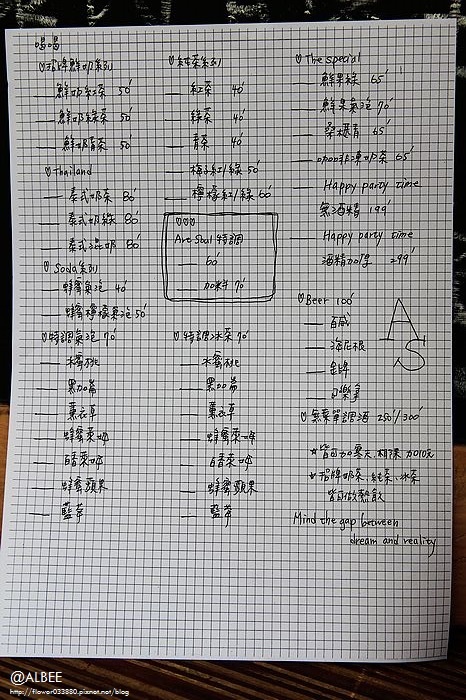 喝喝
♡招牌鮮奶系列
鮮奶紅茶 50'
鮮奶綠茶 50'
鮮奶青茶 50'
♡Thailand
泰式奶茶 80'
泰式奶綠 80'
泰式混奶 80'
♡Soda系列
蜂蜜氣泡 40'
蜂蜜檸檬氣泡 50'
♡特調氣泡 70'
水蜜桃
黑加侖
薰衣草
蜂蜜菓柚
百香菓柚
蜂蜜蘋果
藍莓
♡純茶系列
紅茶 40'
綠茶 40'
青茶 40'
梅子紅/綠 50'
檸檬紅/綠 60'
♡♡♡
Are Soul 特調
60'
加料 70'
♡特調冰茶 70'
水蜜桃
黑加侖
薰衣草
蜂蜜菓柚
百香菓柚
蜂蜜蘋果
藍莓
♡The special
鮮果綠 65'
鮮果氣泡 70'
桑椹青 65'
咖啡凍奶茶 65'
Happy party time
無酒精 199'
Happy party time
酒精加厚 299'
♡Beer 100'
百威
海尼根
金牌
可樂娜
AS
♡無菜單調酒 250'/300'
★皆可加寒天,椰果 加10元
★招牌奶茶,純茶,冰茶
皆可做熱飲
Mind the gap between
dream and reality
@ALBEE
http://flower033880.pixnet.net/blog